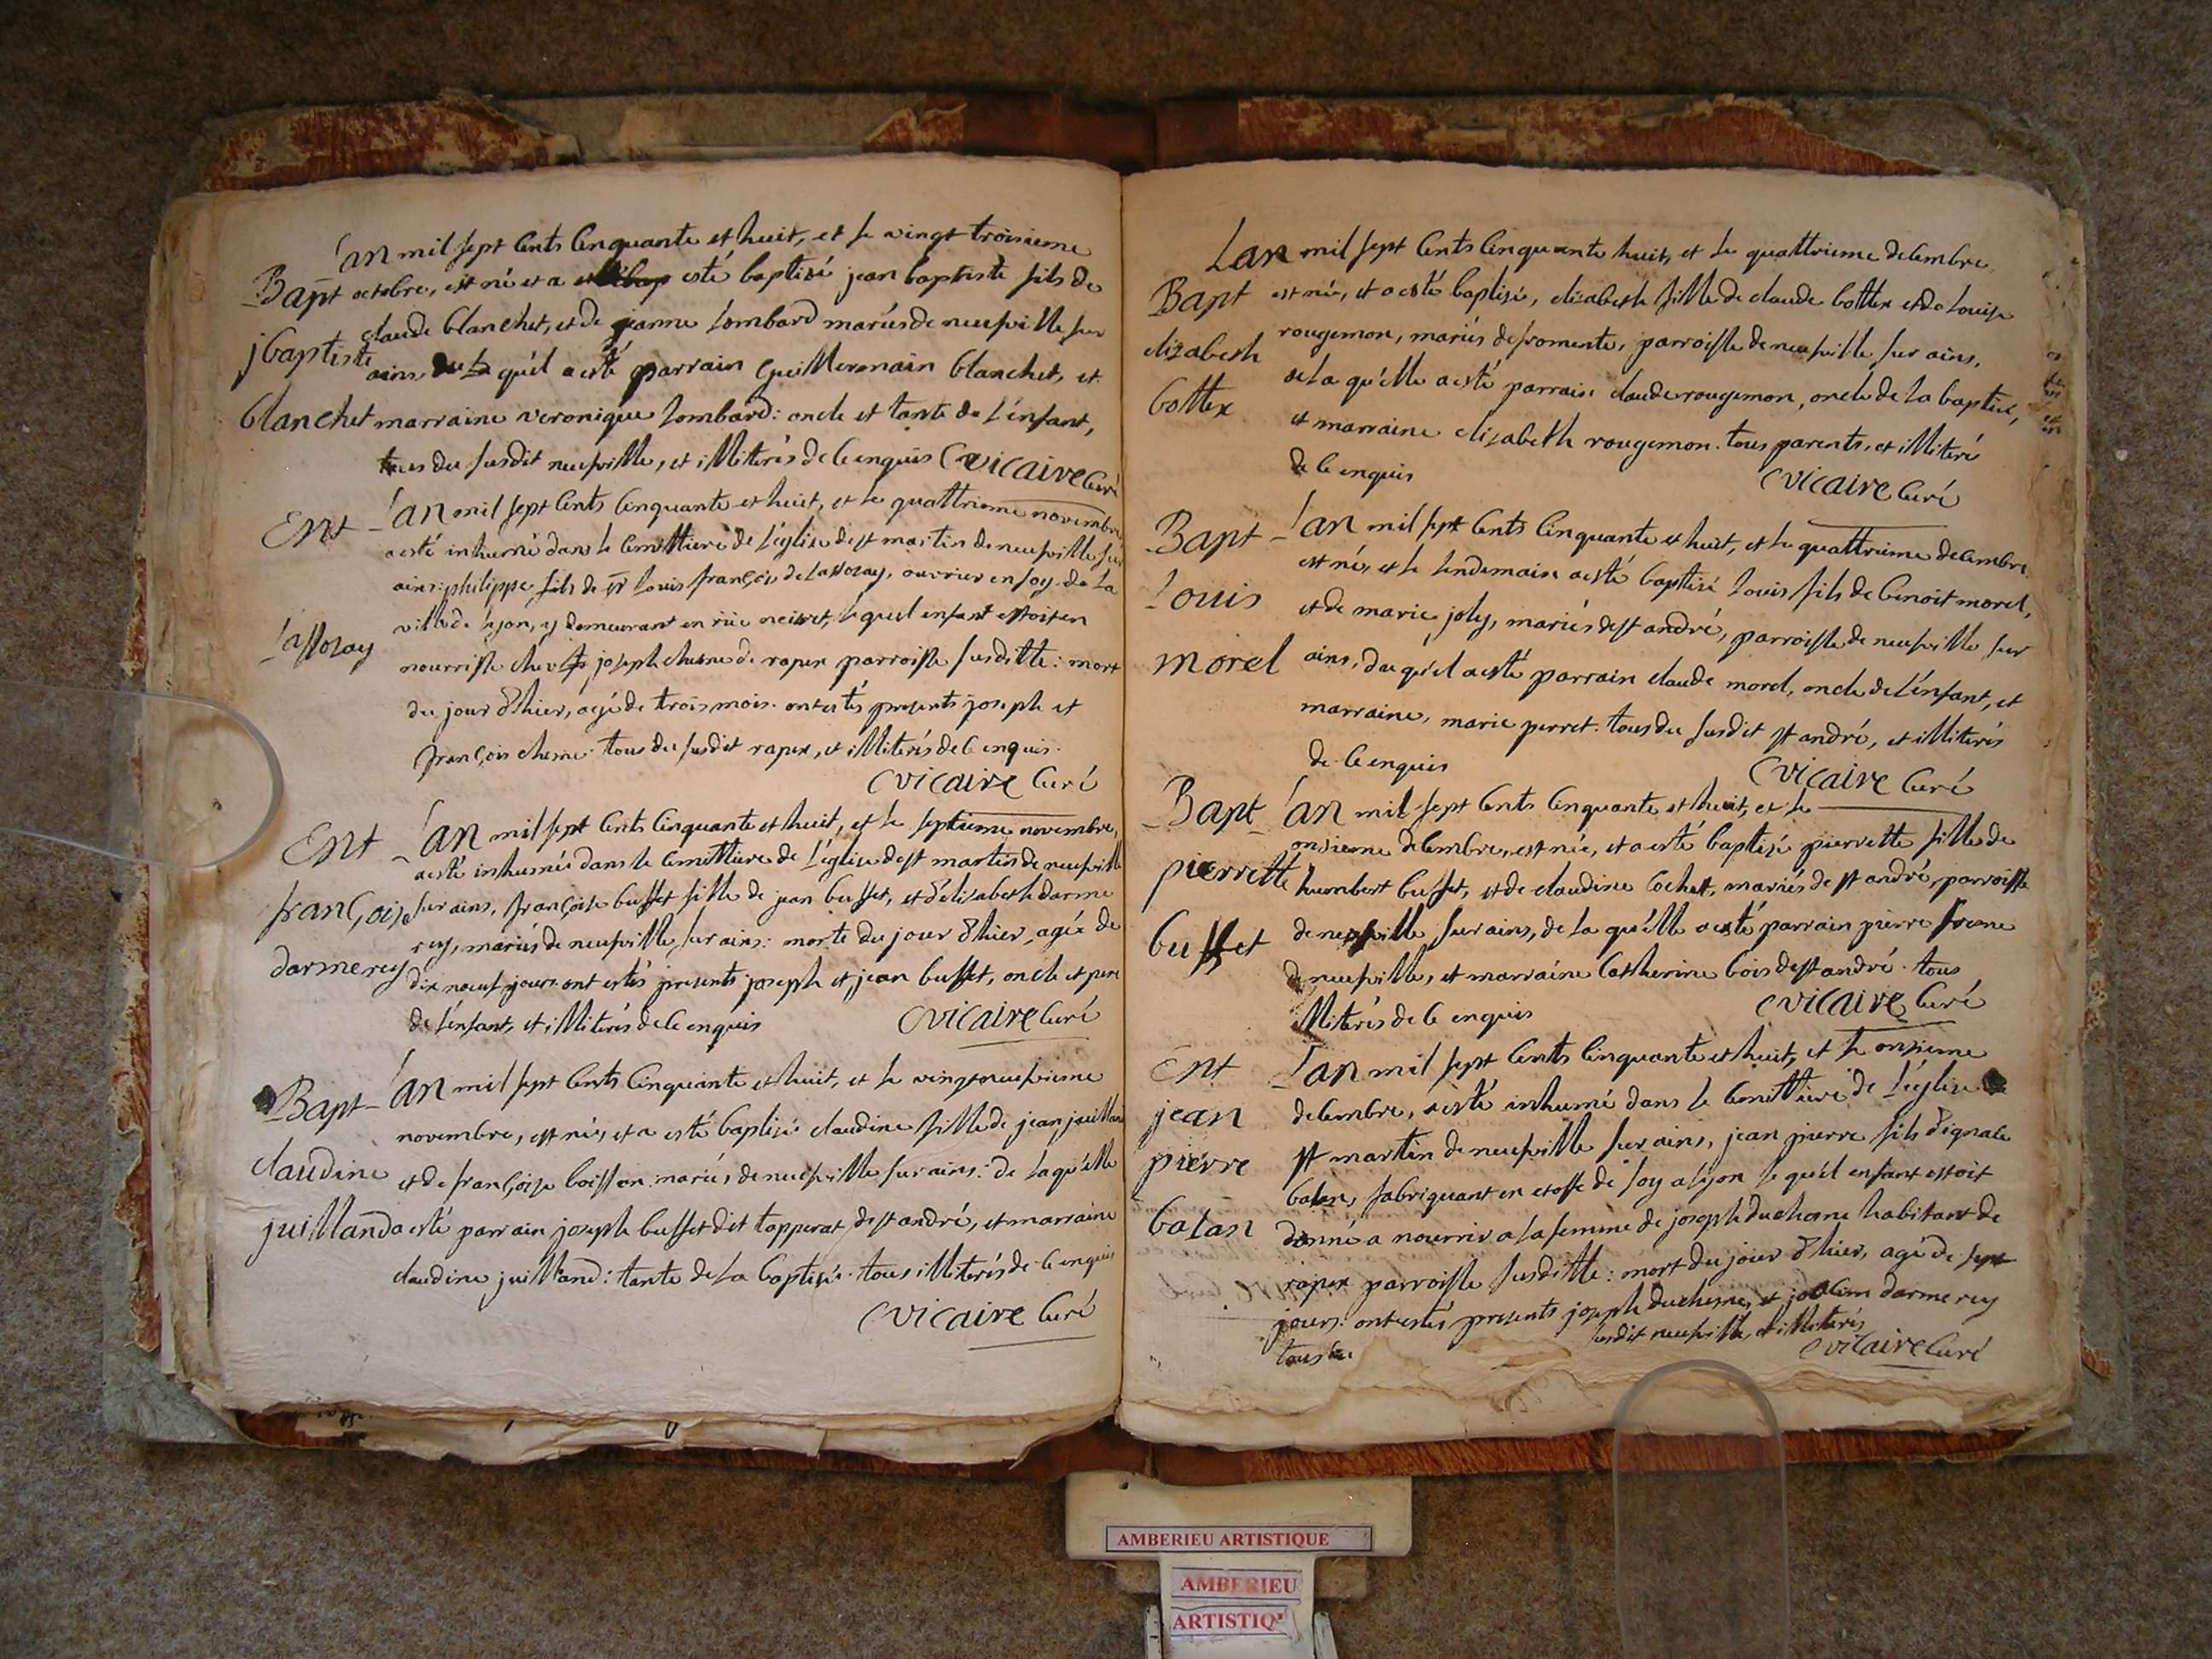 Lan mil sept cents cinquante et huit, et le vingt troisieme
Bapt octobre, est né et a esté baptisé jean baptiste fils de
claude blanchet, et de jeanne lombard mariés de neufville sur
jbaptiste ains du qu'él a esté parrain Guillermain blanchet, et
blanchet marraine veronique lombard: oncle et tante de l'énfant,
tous du susdit neufville, et illiterés de ce enquis Cvicaire Curé
Ent - Lan mil sept cents cinquante et huit, et le quattrieme novembre
a esté inhumé dans le cemettiere de l'églize de st martin de neufville sur
ains: philippe, fils de sr louis françois de lassozay, ouvrier en soy de la
ville de lyon, y demeurant en rüe neuve, le quel enfant estoit en
lassozay
nourrisse chez joseph chesne de rapex parroisse susditte: mort
du jour d'hier, agé de trois mois. ont estés presents joseph et
françois chesne. tous du susdit rapex, et illiterés de ce enquis.
Cvicaire Curé
Ent - Lan mil sept cents cinquante et huit, et le septieme novembre,
a esté inhumée dans le cemettiere de l'églize de st martin de neufville
françoise sur ains, françoise buffet fille de jean buffet, et d'élisabeth darme
rey, mariés de neufville sur ains: morte du jour d'hier, agée de
darmerey dix neuf jours. ont estés presents joseph et jean buffet, oncle et pere
de l'énfant, et illiterés de ce enquis Cvicaire Curé
Bapt - Lan mil sept cents cinquante et huit, et le vingt neufvieme
novembre, est née, et a esté baptisée claudine fille de jean juilland
claudine et de françoise boisson. mariés de neufville sur ains: de la qu'élle
juilland a esté parrain joseph buffet dit tapperat de st andré, et marraine
claudine juilland: tante de la baptisée. tous illiterés de ce enquis
Cvicaire Curé
Lan mil sept cents cinquante huit, et le quattrieme decembre
Bapt est née, et a esté baptisée, elizabeth fille de claude bottex et de louise
elizabeth rougemon, mariés de fromente, parroisse de neufville sur ains.
bottex de la qu'élle a esté parrain claude rougemon, oncle de la baptisée,
et marraine elizabeth rougemon. tous parents, et illiteré
de ce enquis Cvicaire Curé
Bapt - Lan mil sept cents cinquante et huit, et le quattrieme decembre
est né, et le lendemain a esté baptisé louis fils de benoit morel,
louis et de marie joly, mariés de st andré, parroisse de neufville sur
morel ains, du qu'él a esté parrain claude morel, oncle de l'énfant, et
marraine, marie perret. tous du susdit st andré, et illiterés
de ce enquis Cvicaire Curé
Bapt - Lan mil sept cents cinquante et huit, et le
onsieme decembre, est née, et a esté baptisée pierrette fille de
pierrette humbert buffet, et de claudine cochet, mariés de st andré, parroisse
buffet de neufville sur ains, de la qu'élle a esté parrain pierre
de neufville, et marraine catherine bois de st andré. tous
illiterés de ce enquis Cvicaire Curé
Ent - Lan mil sept cents cinquante et huit, et le onsieme
jean decembre, a esté inhumé dans le cemettiere de l'églize
pierre st martin de neufville sur ains, jean pierre fils d'ignace
balan, fabriquant en etoffe de soy a lyon le qu'él enfant estoit
balan donné a nourrir a la femme de joseph duchesne habitant de
rapex parroisse susditte: mort du jour d'hier, agé de sept
jours: ont estés presents joseph duchesne, et darmerey
tous du susdit neufville, et illiterés
Cvicaire Curé
AMBERIEU ARTISTIQUE
AMBERIEU
ARTISTIQ